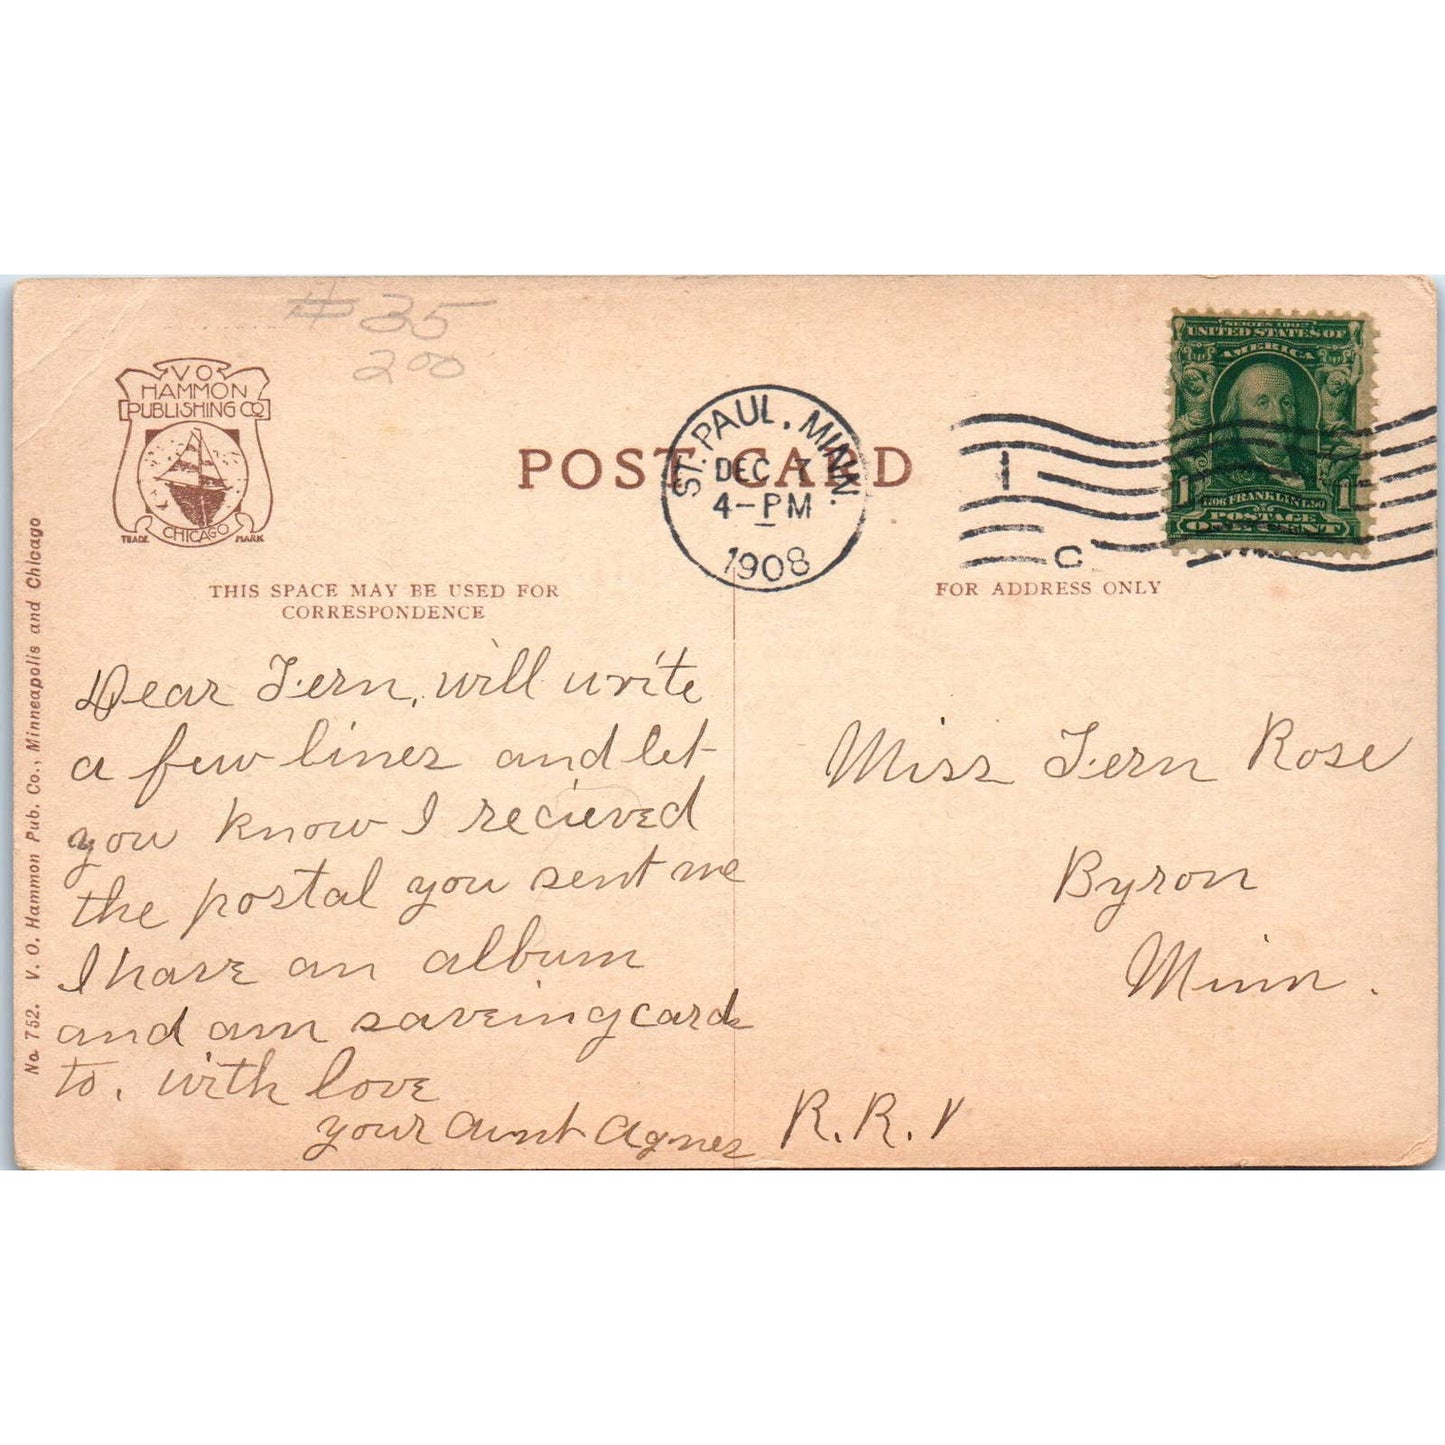 # 35
200
V O
HAMMON
PUBLISHING CO
CHICAGO
TRADE MARK
POST CARD
ST. PAUL, MINN.
DEC 7
4-PM
1908
1
C
SERIES 1902
UNITED STATES OF
AMERICA
1706 FRANKLIN 1790
1 1
POSTAGE
ONE CENT
THIS SPACE MAY BE USED FOR
CORRESPONDENCE
FOR ADDRESS ONLY
No. 752. V. O. Hammon Pub. Co., Minneapolis and Chicago
Dear Fern, will write
a few lines and let
you know I recieved
the postal you sent me
I have an album
and am saveing cards
to. with love
your Aunt Agnes
Miss Fern Rose
Byron
Minn.
R.R. 1